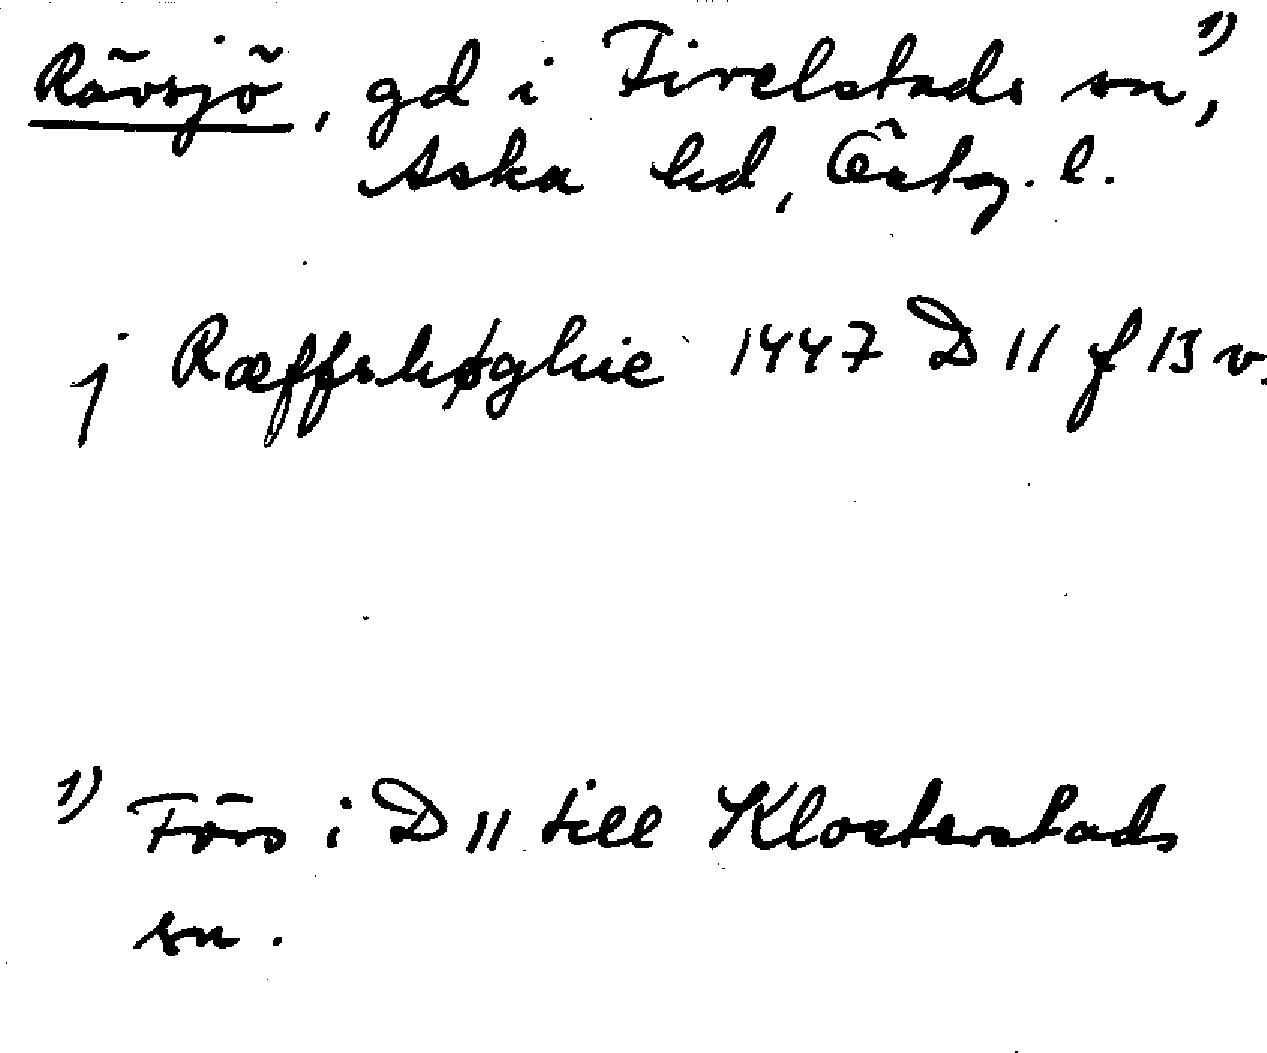 Rävsjö, gd i Fivelstads sn¹⁾,
Aska hd, Östg. l.
j Ræffshøghie 1447 D 11 f 13 v.
¹⁾ Förs i D 11 till Klosterstads
sn.